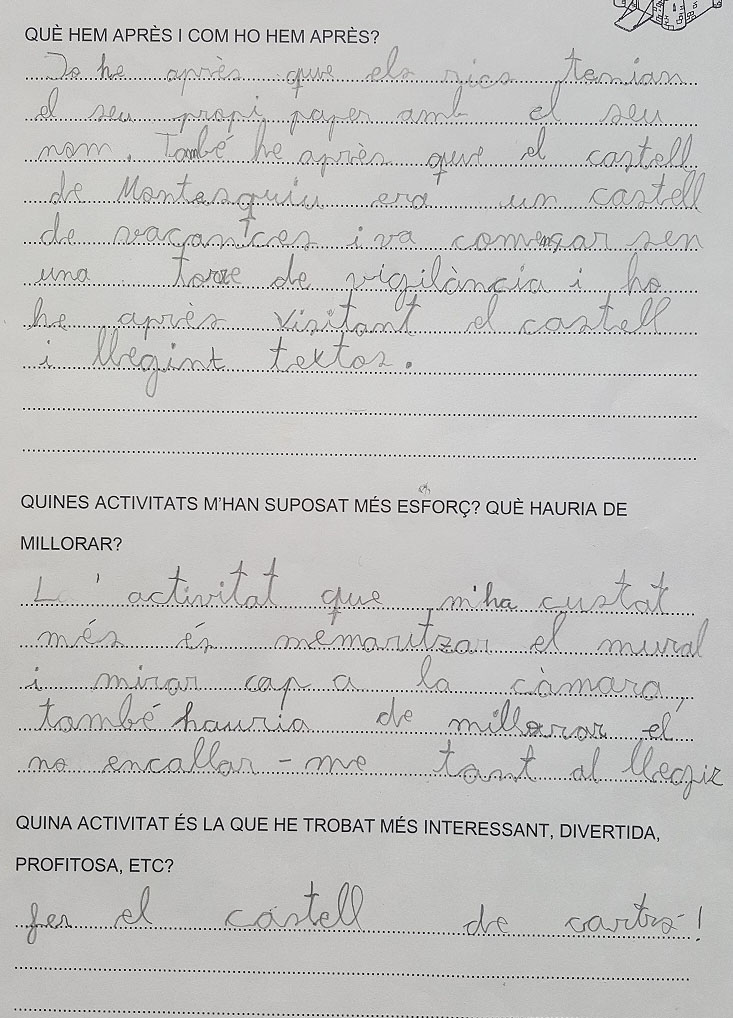 QUÈ HEM APRÈS I COM HO HEM APRÈS?
Jo he après que els rics tenian
el seu propi paper amb el seu
nom. També he après que el castell
de Montesquiu era un castell
de vaçançes i va començar sen
una torre de vigilància i ho
he après visitant el castell
i llegint textos.
QUINES ACTIVITATS M'HAN SUPOSAT MÉS ESFORÇ? QUÈ HAURIA DE
MILLORAR?
L'activitat que m'ha custat
més és memaritzar el mural
i mirar cap a la càmara,
també hauria de millorar el
no encallar-me tant al llegir
QUINA ACTIVITAT ÉS LA QUE HE TROBAT MÉS INTERESSANT, DIVERTIDA,
PROFITOSA, ETC?
fer el castell de cartró!